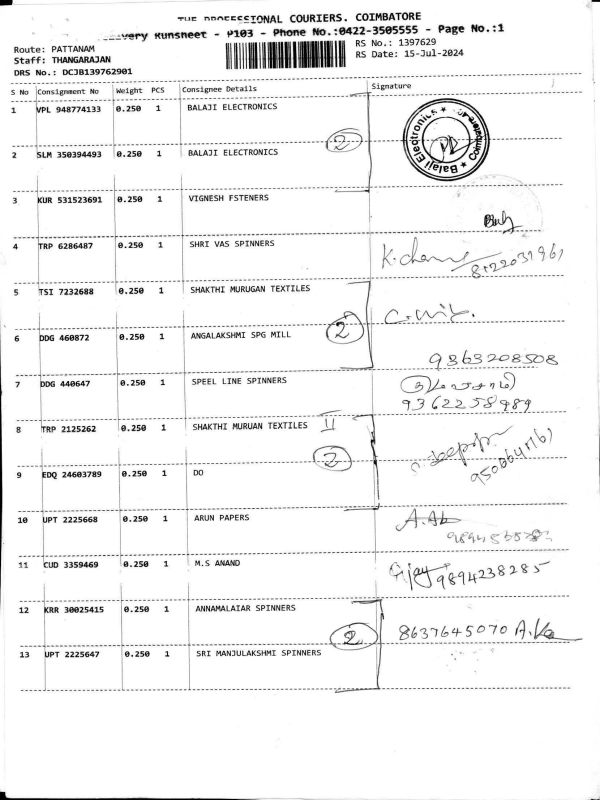 THE PROFESSIONAL COURIERS. COIMBATORE
Delivery Runsheet - P103 - Phone No.:0422-3505555 - Page No.:1
Route: PATTANAM
RS No.: 1397629
Staff: THANGARAJAN
RS Date: 15-Jul-2024
DRS No.: DCJB139762901
S No Consignment No Weight PCS Consignee Details Signature
1 VPL 948774133 0.250 1 BALAJI ELECTRONICS
Balaji Electronics ★ Coimbatore ★
2
2 SLM 350394493 0.250 1 BALAJI ELECTRONICS
3 KUR 531523691 0.250 1 VIGNESH FSTENERS
4 TRP 6286487 0.250 1 SHRI VAS SPINNERS
8122031961
5 TSI 7232688 0.250 1 SHAKTHI MURUGAN TEXTILES
2
6 DDG 460872 0.250 1 ANGALAKSHMI SPG MILL
9363208508
7 DDG 440647 0.250 1 SPEEL LINE SPINNERS
9362258989
8 TRP 2125262 0.250 1 SHAKTHI MURUAN TEXTILES II
2
9 EDQ 24603789 0.250 1 DO
10 UPT 2225668 0.250 1 ARUN PAPERS
11 CUD 3359469 0.250 1 M.S ANAND
9894238285
12 KRR 30025415 0.250 1 ANNAMALAIAR SPINNERS
2 8637645070
13 UPT 2225647 0.250 1 SRI MANJULAKSHMI SPINNERS